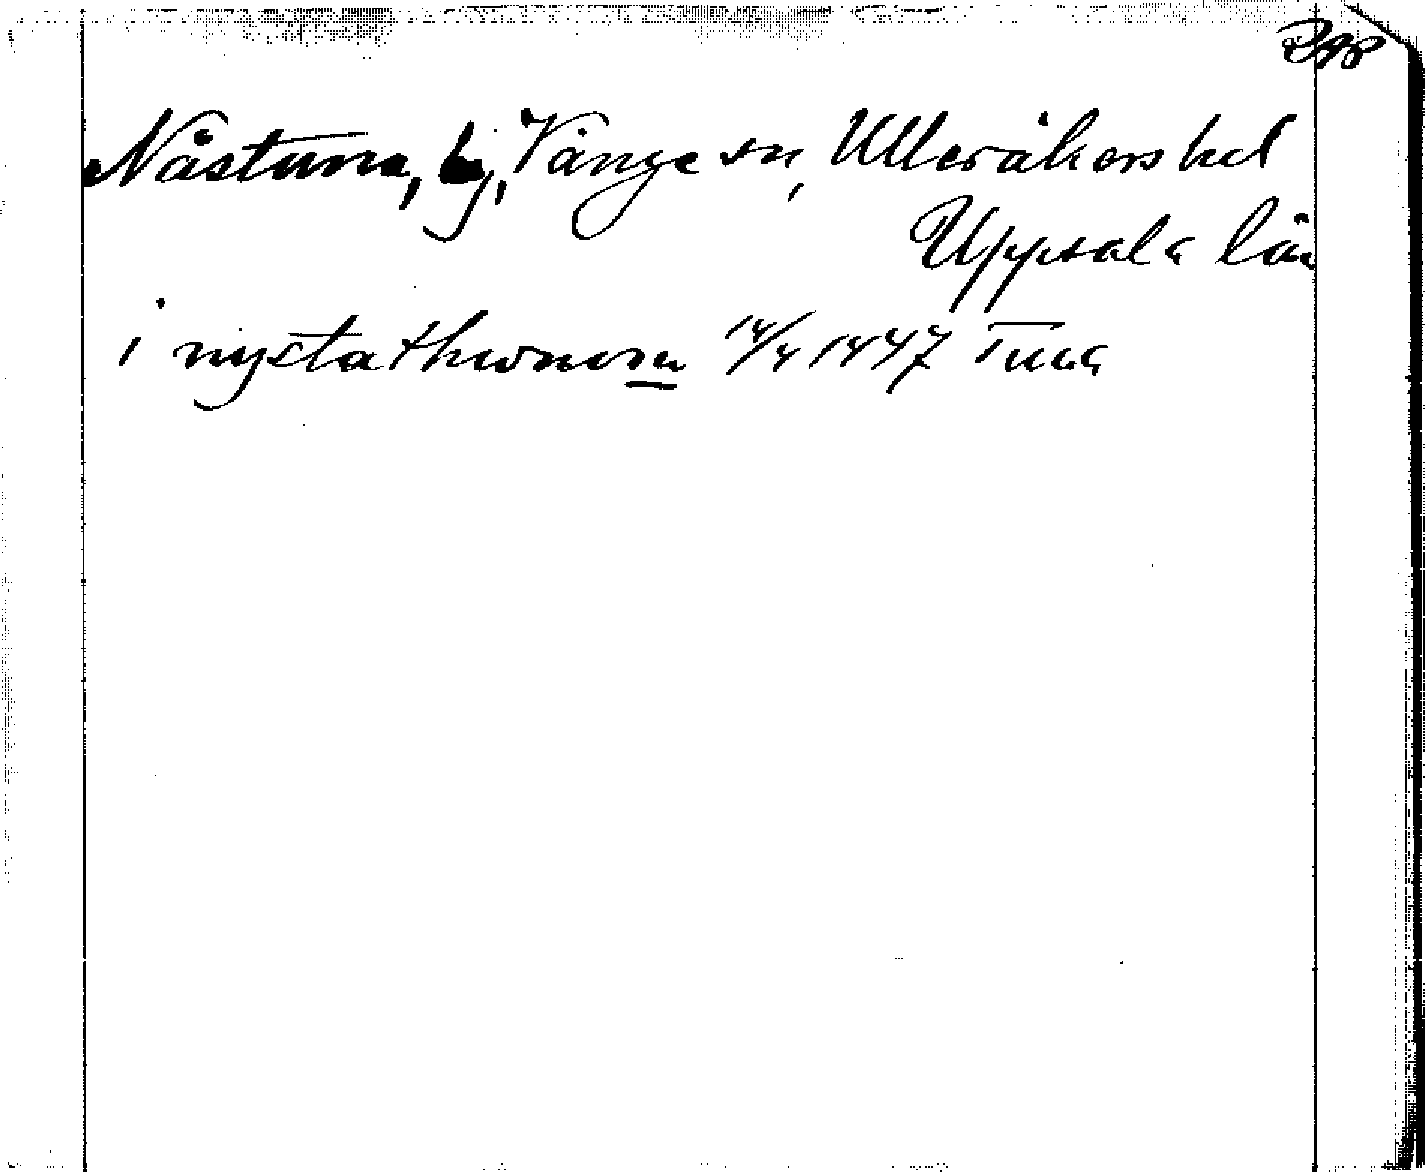 Nåstuna, by, Vänge sn, Ulleråkers hd
Uppsala län
i nystathwnom 14/4 1447 Tuna